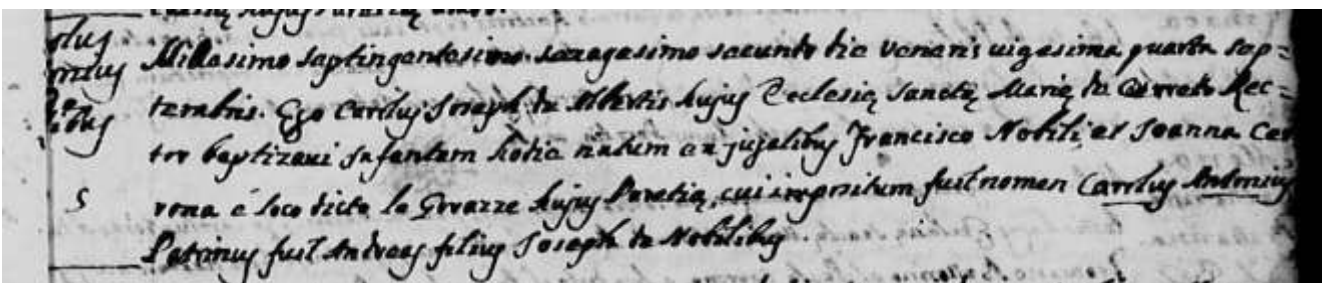 olus
Millesimo septingentesimo sexagesimo secundo die Veneris uigesima quarta Sep=
tembris. Ego Carolus Joseph de Albertis hujus Ecclesię Sanctę Marię de Cerreto Rec=
tor baptizaui Infantem hodie natum ex jugalibus Francisco Nobili, et Joanna Cer
rona è loco dicto le Govazze hujus Parecię, cui impositum fuit nomen Carolus Antonius
5
Patrinus fuit Andreas filius Joseph de Nobilibus